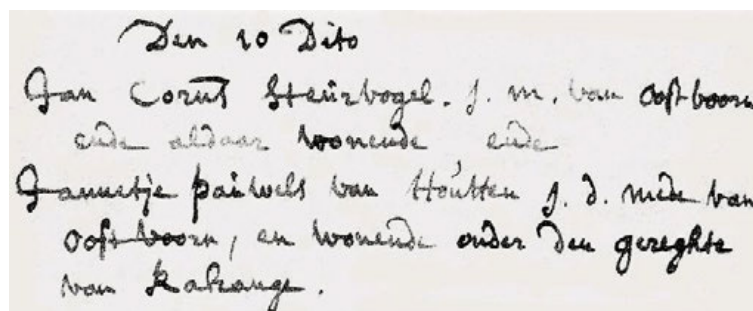 Den 10 Dito
Jan Corns̅ Steürvogel. j. m. van oostvoorn
ende aldaar wonende ende
Jannetje paüwels van Hoútten j. d. mede van
oostvoorn, en wonende onder den gereghte
van Kakange.